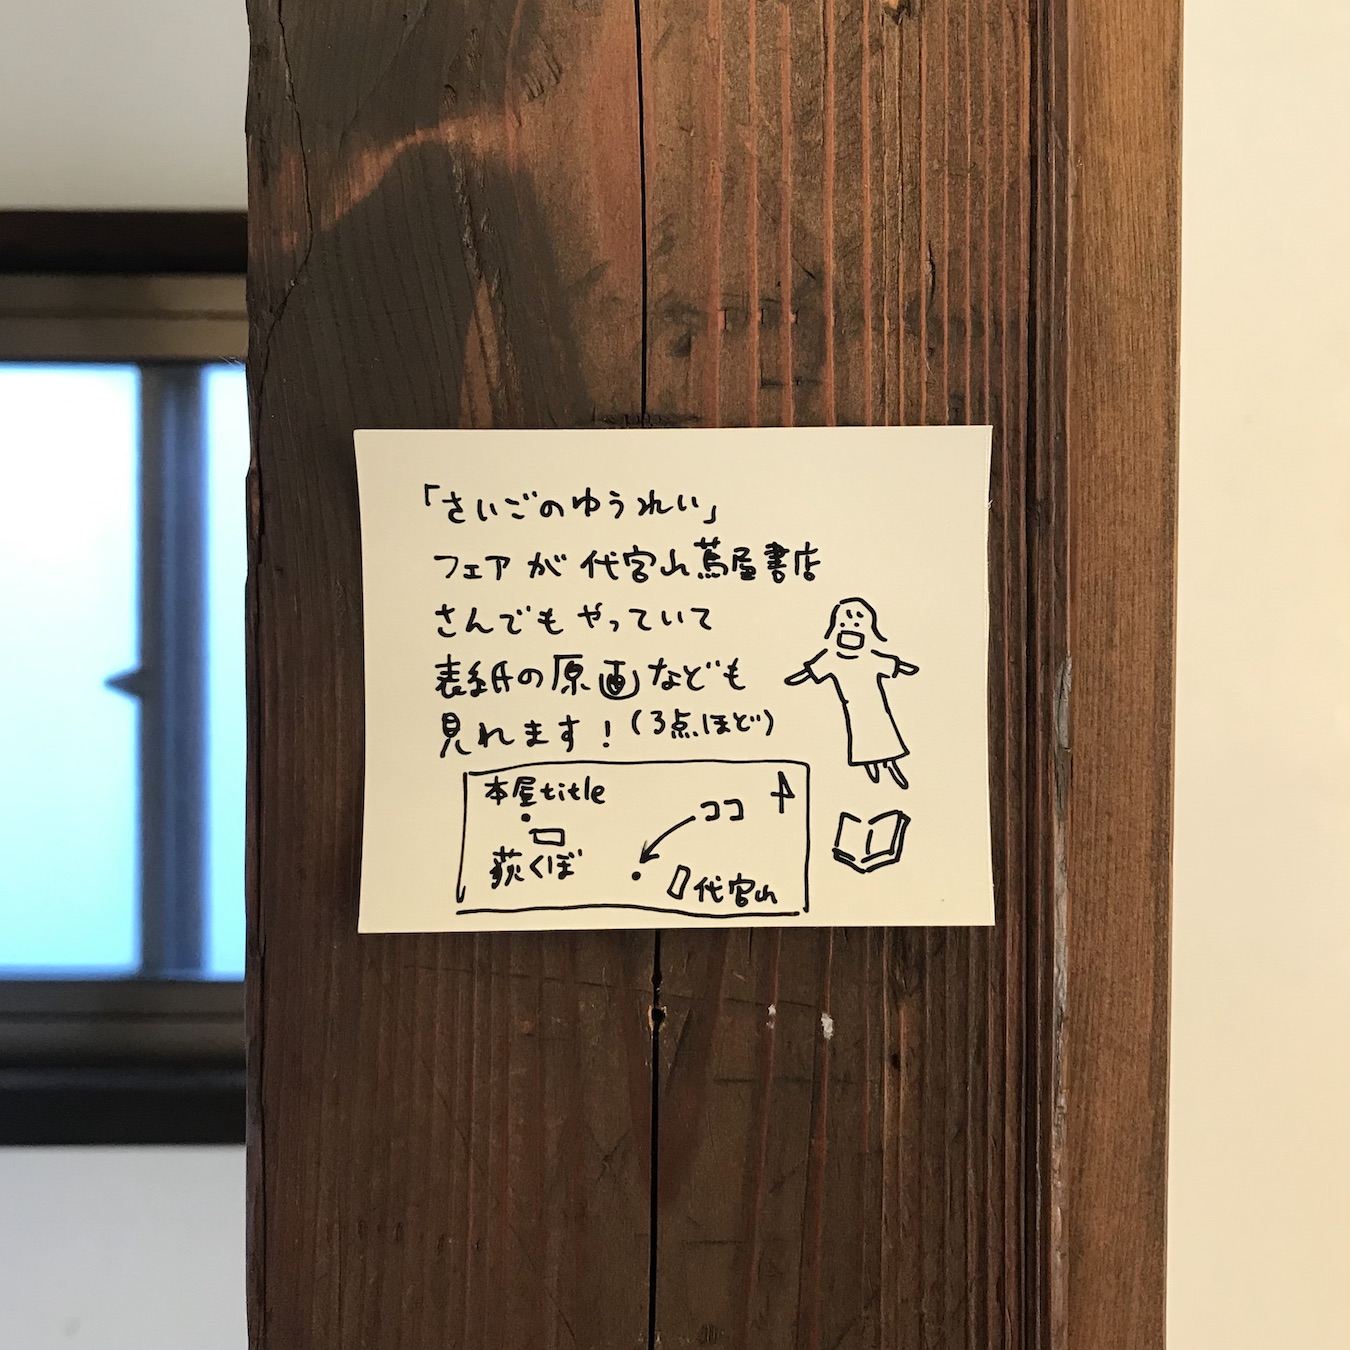 「さいごのゆうれい」
フェアが代官山蔦屋書店
さんでもやっていて
表紙の原画なども
見れます！(3点ほど)
本屋title
ココ
荻くぼ
代官山